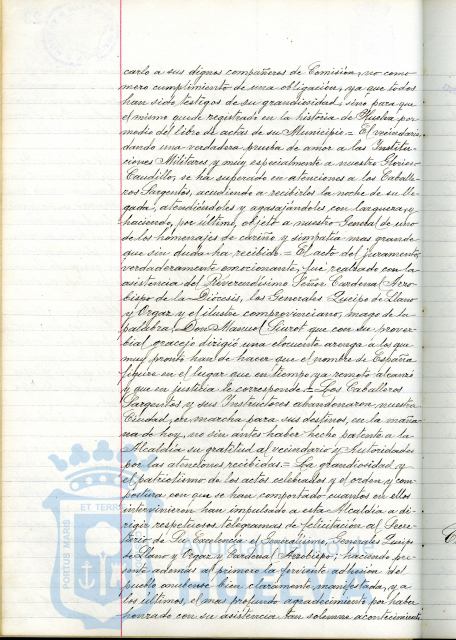 carlo a sus dignos compañeros de Comisión, no como
mero cumplimiento de una obligación, ya que todos
han sido testigos de su grandiosidad, sino para que
el mismo quede registrado en la historia de Huelva por
medio del libro de actas de su Municipio = El vecindario
dando una verdadera prueba de amor a las Institu-
ciones Militares y muy especialmente a nuestro Glorioso
Caudillo, se ha superado en atenciones a los Caballe-
ros Sargentos, acudiendo a recibirlos la noche de su lle-
gada, atendiéndoles y agasajándoles con largueza, y
haciendo, por último, objeto a nuestro General de uno
de los homenajes de cariño y simpatía mas grande
que sin duda ha recibido = El acto del juramento,
verdaderamente emocionante, fue realzado con la
asistencia del Reverendísimo Señor Cardenal Arzo-
bispo de la Diócesis, los Generales Queipo de Llano
y Orgaz y el ilustre comprovinciano, mago de la
palabra, Don Manuel Siurot que con su prover-
bial gracejo dirigió una elocuente arenga a los que
muy pronto han de hacer que el nombre de España
figure en el lugar que en tiempo ya remoto alcanzó
y que en justicia le corresponde = Los Caballeros
Sargentos y sus Instructores abandonaron nuestra
Ciudad, en marcha para sus destinos, en la maña-
na de hoy, no sin antes haber hecho patente a la
Alcaldía su gratitud al vecindario y Autoridades
por las atenciones recibidas = La grandiosidad y
el patriotismo de los actos celebrados y el orden y com-
postura con que se han comportado cuantos en ellos
intervinieron han impulsado a esta Alcaldía a di-
rigir respetuosos telegramas de felicitación al Secre-
tario de Su Excelencia el Generalísimo, Generales Queipo
de Llano y Orgaz y Cardenal Arzobispo; haciendo pre-
sente además al primero la ferviente adhesión del
pueblo onubense bien claramente manifestada, y a
los últimos, el mas profundo agradecimiento por haber
honrado con su asistencia tan solemne acontecimiento
ET TERR
PORTUS MARIS
HUELVA